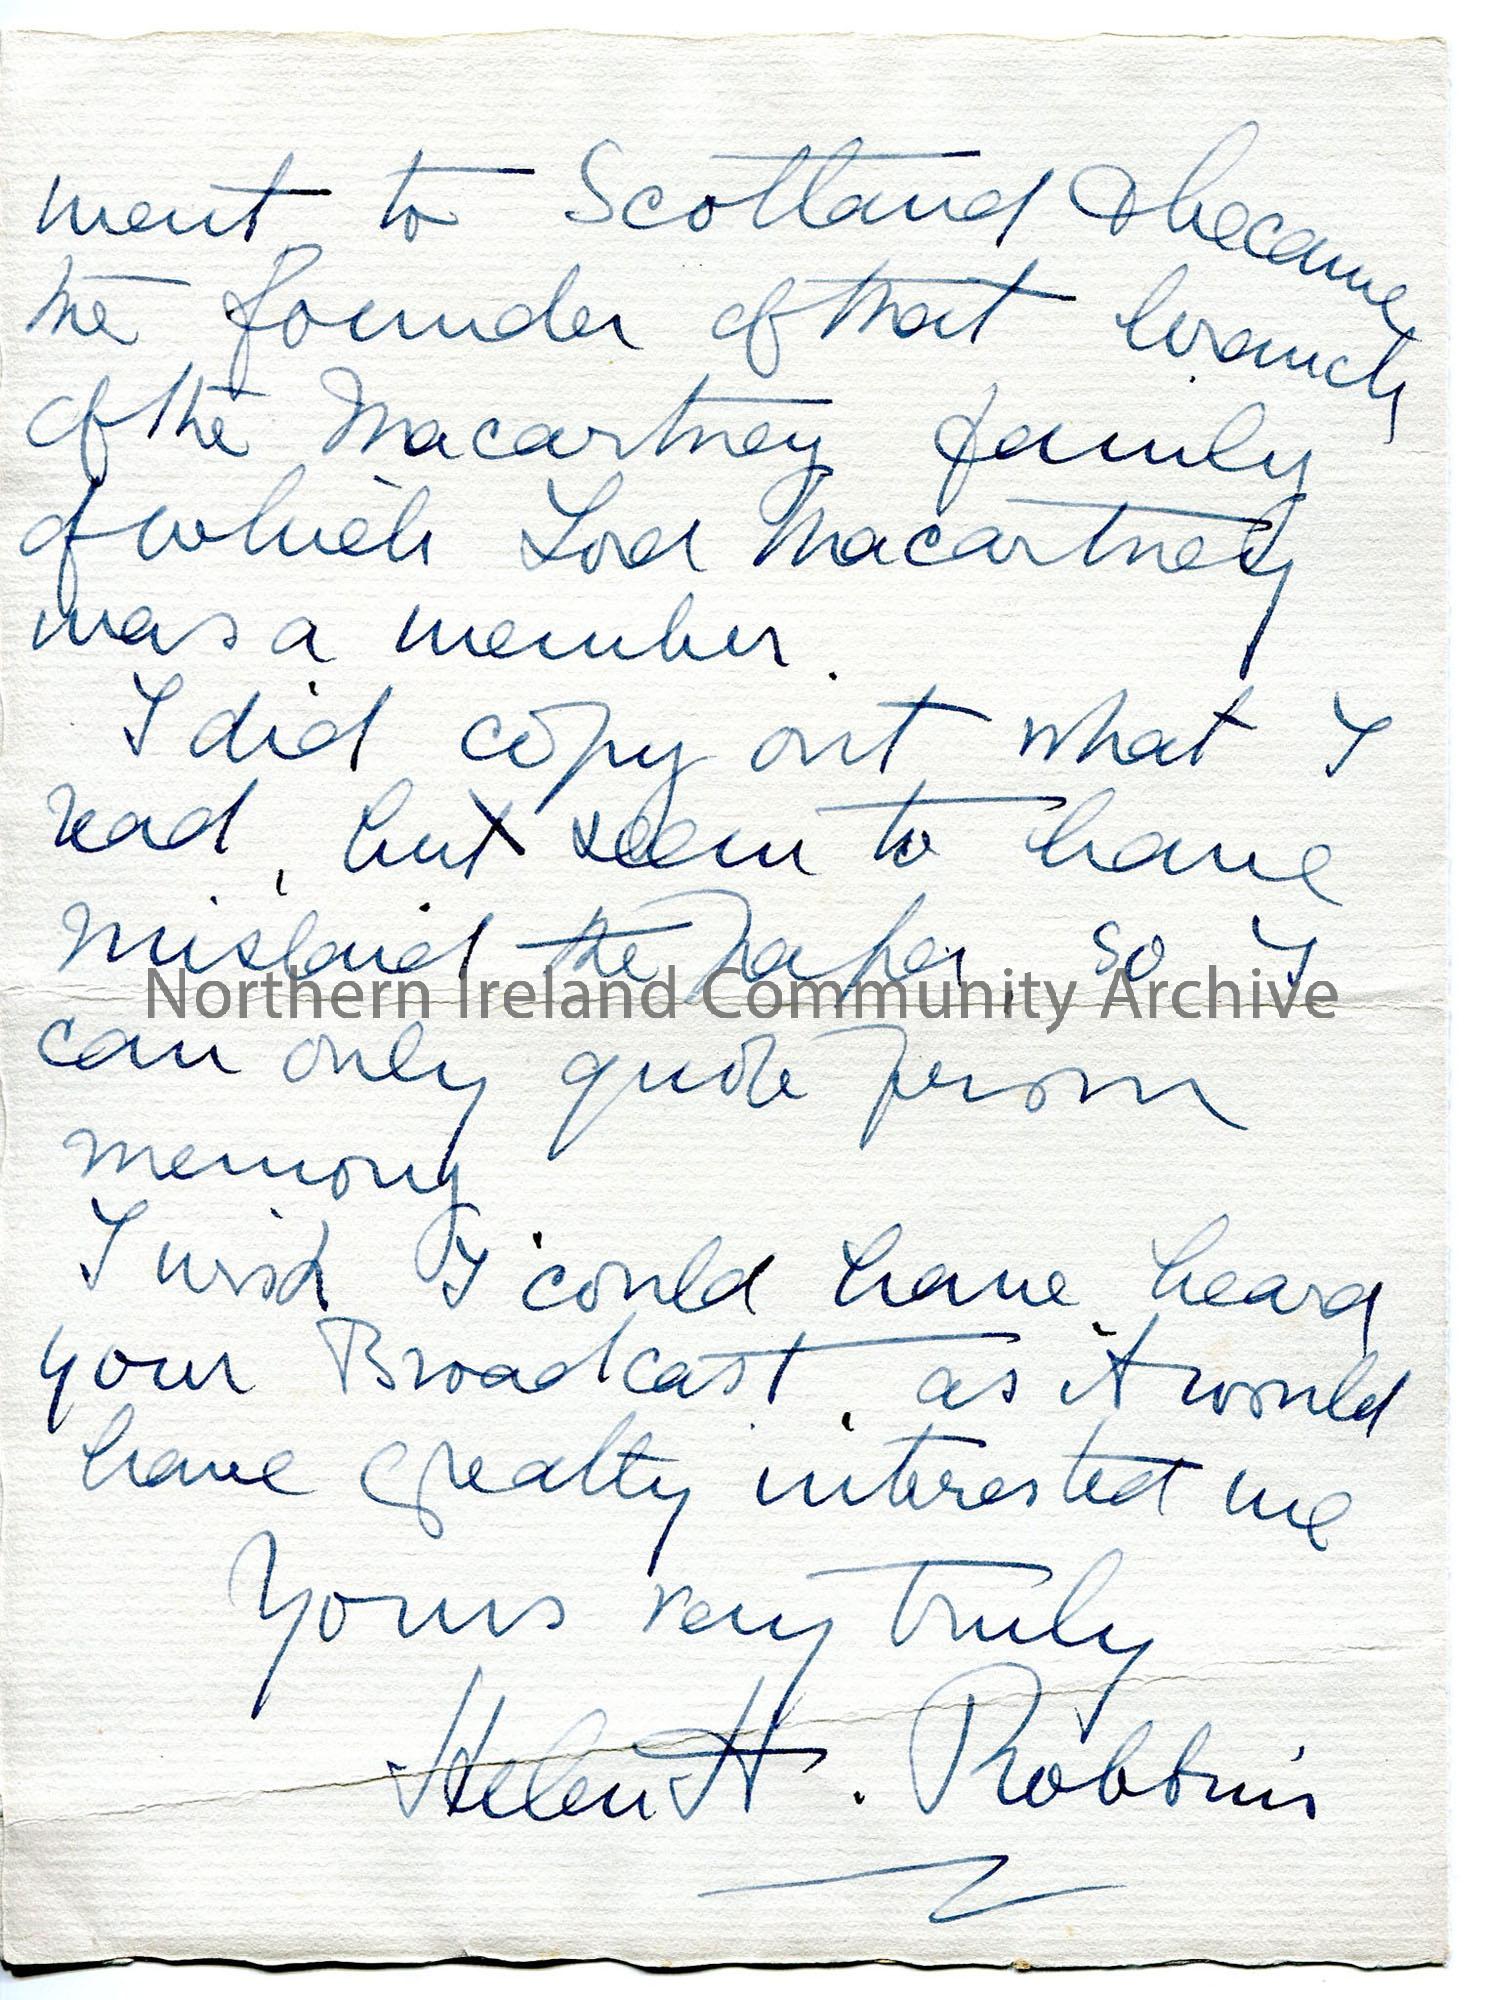 went to Scotland & became
the founder of that branch
of the Macartney family
of which Lord Macartney
was a member.
I did copy out what I
read, but seem to have
mislaid the paper, so I
Northern Ireland Community Archive
can only quote from
memory
I wish I could have heard
your Broadcast, as it would
have greatly interested me
Yours very truly
Helen H. Robbins